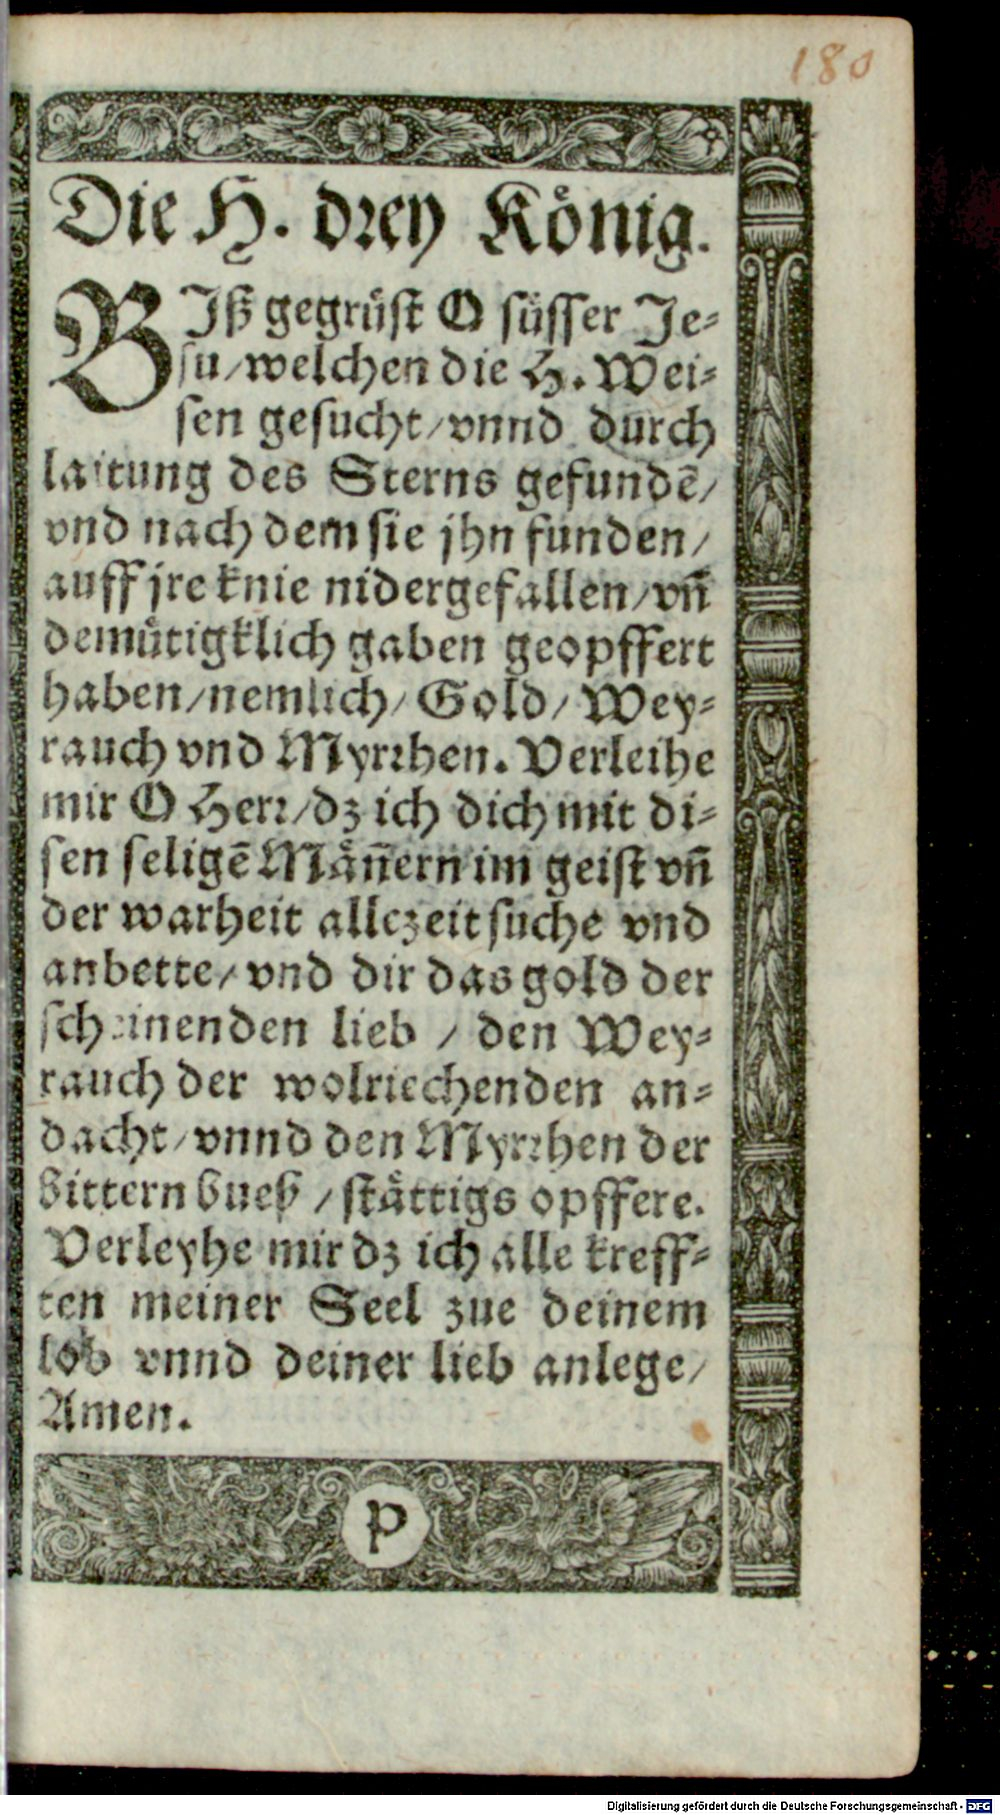 180
Die H. drey König.
BIß gegrüst O süsser Je-
su/welchen die H. Wei-
sen gesucht/vnnd durch
laitung des Sterns gefundē/
vnd nach dem sie jhn funden/
auff jre knie nidergefallen/vñ
demütigklich gaben geopffert
haben/nemlich/Gold/Wey-
rauch vnd Myrrhen. Verleihe
mir O Herr/dz ich dich mit di-
sen seligē Mäñern im geist vñ
der warheit allezeit suche vnd
anbette/vnd dir das gold der
scheinenden lieb / den Wey-
rauch der wolriechenden an-
dacht/vnnd den Myrrhen der
bittern bueß / stättigs opffere.
Verleyhe mir dz ich alle kreff-
ten meiner Seel zue deinem
lob vnnd deiner lieb anlege/
Amen.
P
Digitalisierung gefördert durch die Deutsche Forschungsgemeinschaft - DFG